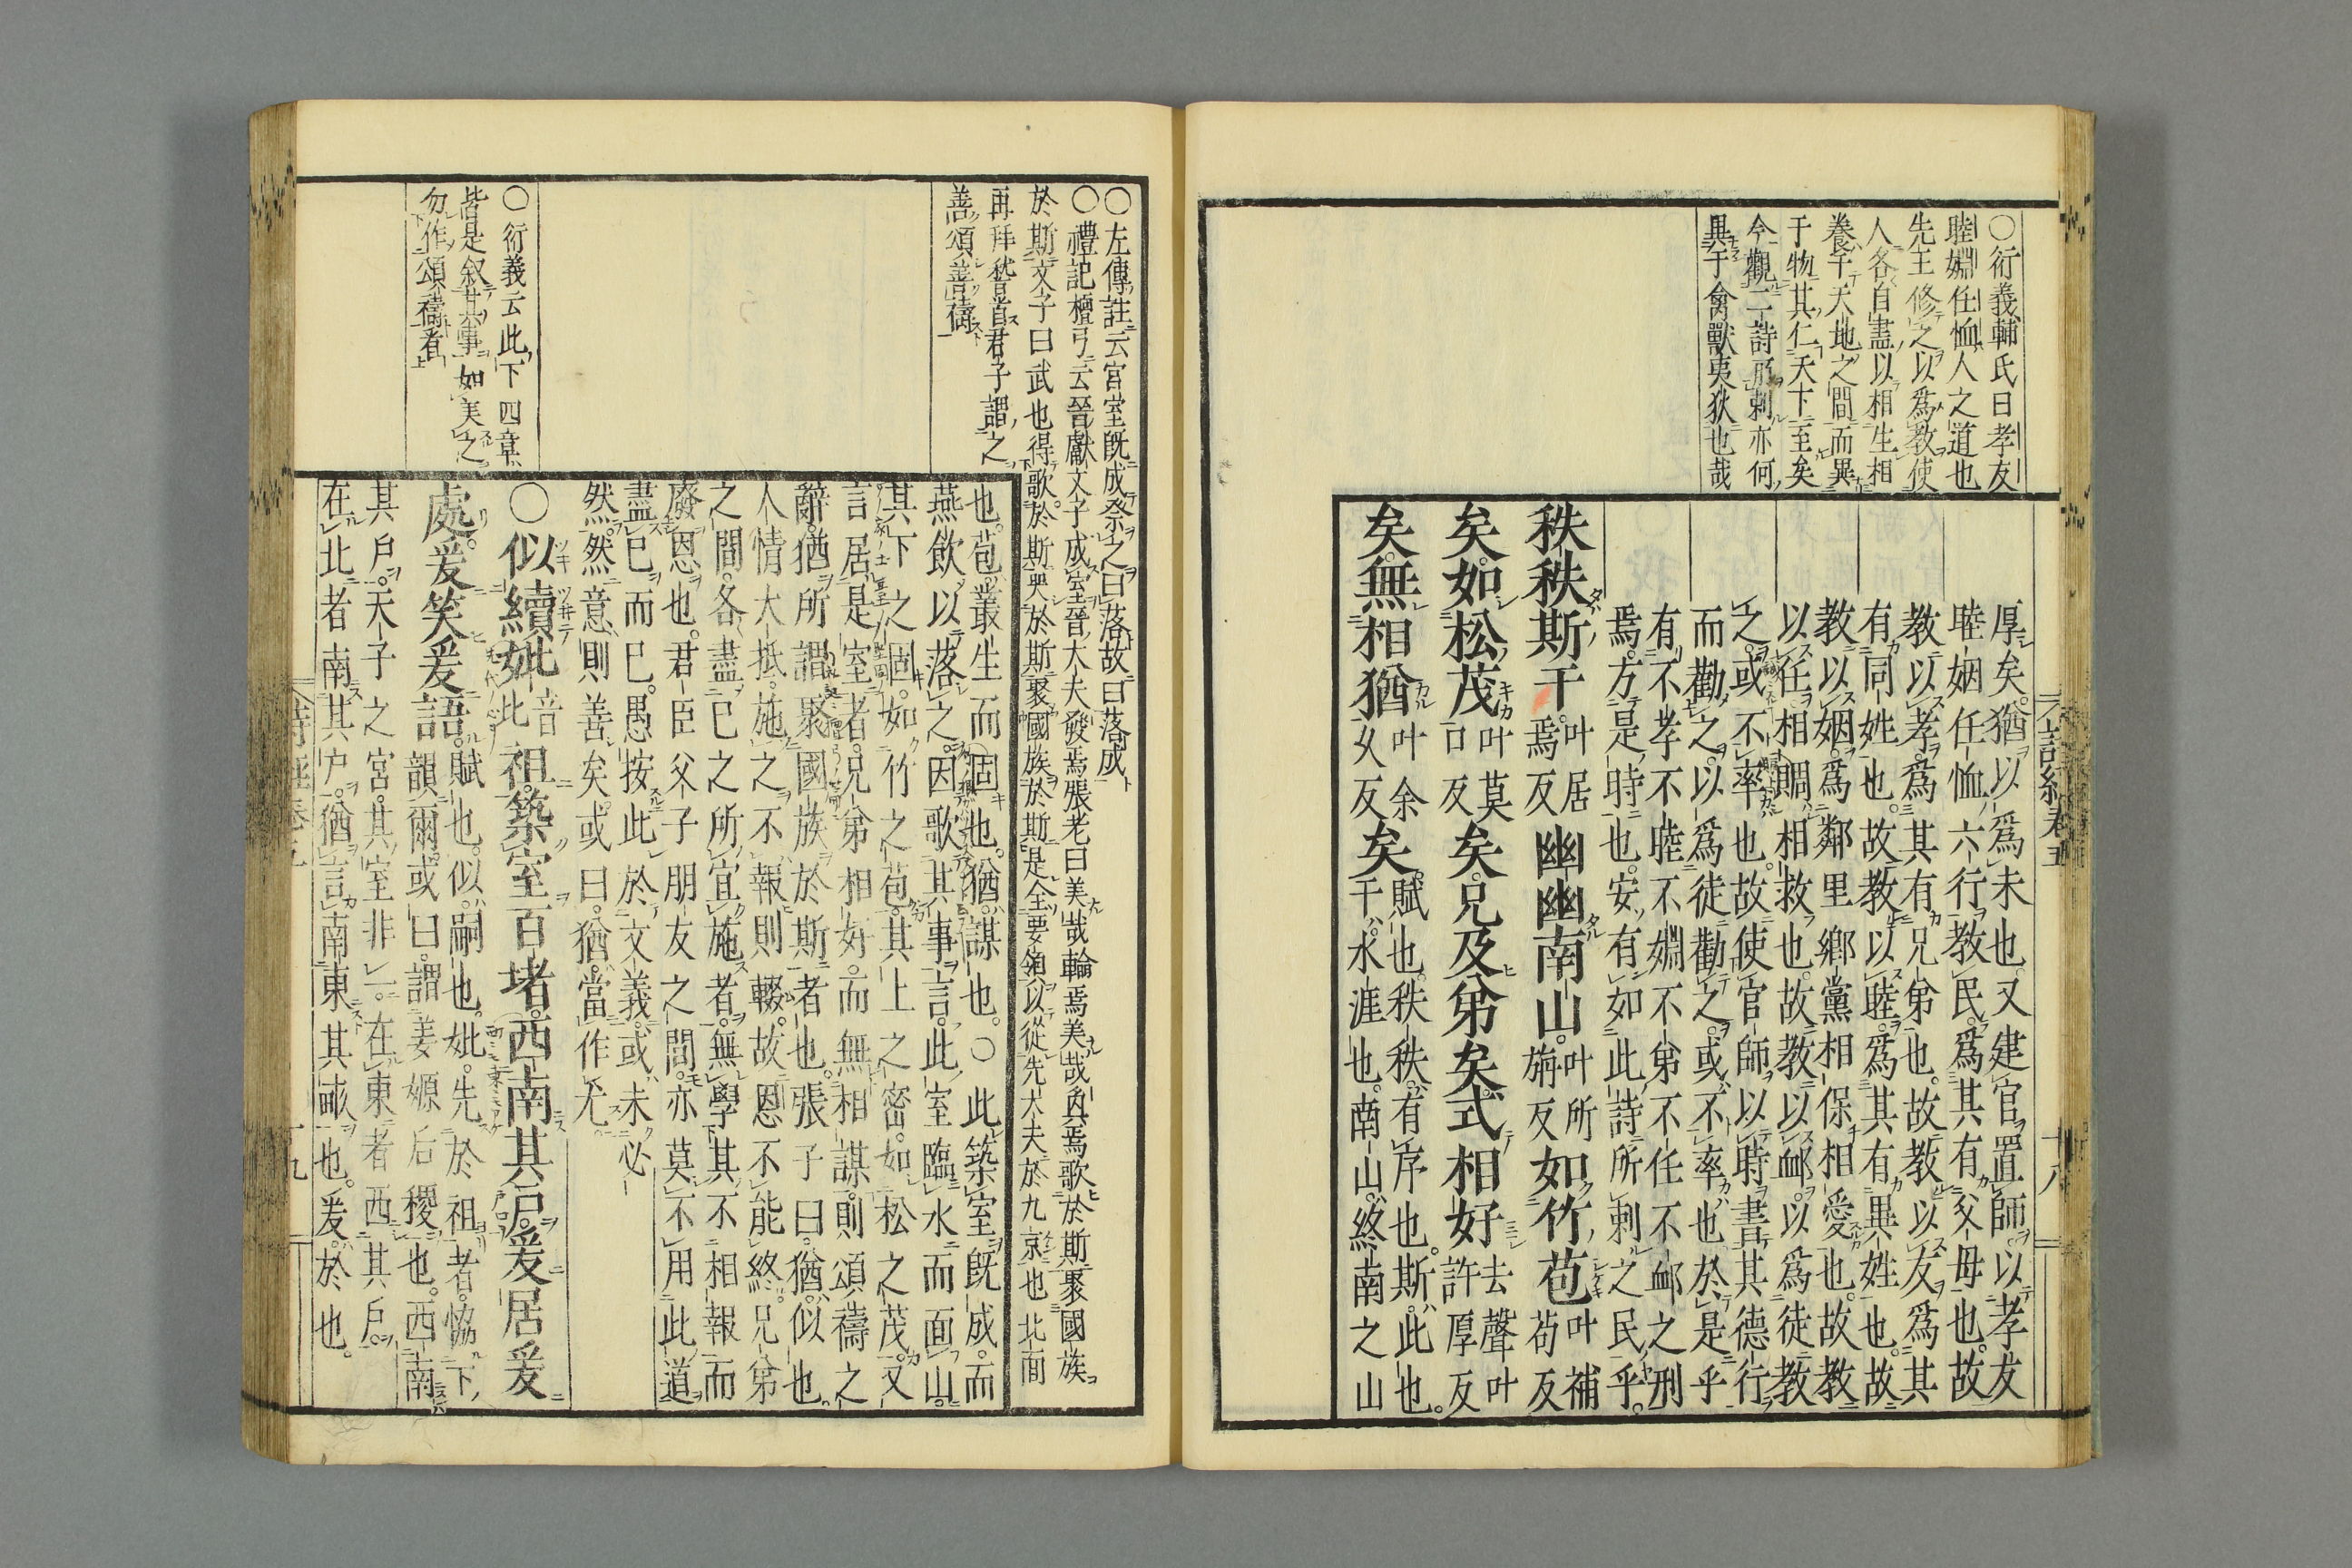 〇衍義輔氏曰孝友
睦婣任恤人之道也
先王修之以爲教使
人各自盡以相生相
養于天地之間而異
于物其仁天下至矣
今觀二詩所刺亦何
異于禽獸夷狄也哉
厚矣猶以爲未也又建官置師以孝友
睦姻任恤六行教民爲其有父母也故
教以孝爲其有兄弟也故教以友爲其
有同姓也故教以睦爲其有異姓也故
教以姻爲鄰里鄉黨相保相愛也故教
以任相賙相救也故教以䘏以爲徒教
之或不率也故使官師以時書其德行
而勸之以爲徒勸之或不率也於是乎
有不孝不睦不婣不弟不任不䘏之刑
焉方是時也安有如此詩所刺之民乎
秩秩斯干叶居焉反幽幽南山叶所旃反如竹苞叶補苟反
矣如松茂叶莫口反矣兄及弟矣式相好去聲叶許厚反
矣無相猶叶余久反矣賦也秩秩有序也斯此也
干水涯也南山終南之山
〇左傳註云宮室既成祭之曰落故曰落成
〇禮記檀弓云晉獻文子成室晉大夫發焉張老曰美哉輪焉美哉奐焉歌於斯聚國族
於斯文子曰武也得歌於斯哭於斯聚國族於斯是全要領以從先大夫於九京也北面
再拜稽首君子謂之
善頌善禱
也苞叢生而固也猶謀也〇此築室既成而
燕飲以落之因歌其事言此室臨水而面山
其下之固如竹之苞其上之密如松之茂又
言居是室者兄弟相好而無相謀則頌禱之
辭猶所謂聚國族於斯者也張子曰猶似也
人情大抵施之不報則輟故恩不能終兄弟
之間各盡己之所宜施者無學其不相報而
廢恩也君臣父子朋友之間亦莫不用此道
盡己而已愚按此於文義或未必
然然意則善矣或曰猶當作尤
〇衍義云此下四章
皆是叙其事如美之
勿作頌禱者
〇似續妣音比祖築室百堵西南其戶爰居爰
處爰笑爰語賦也似嗣也妣先於祖者協下
韻爾或曰謂姜嫄后稷也西南
其戶天子之宮其室非一在東者西其戶
在北者南其戶猶言南東其畝也爰於也